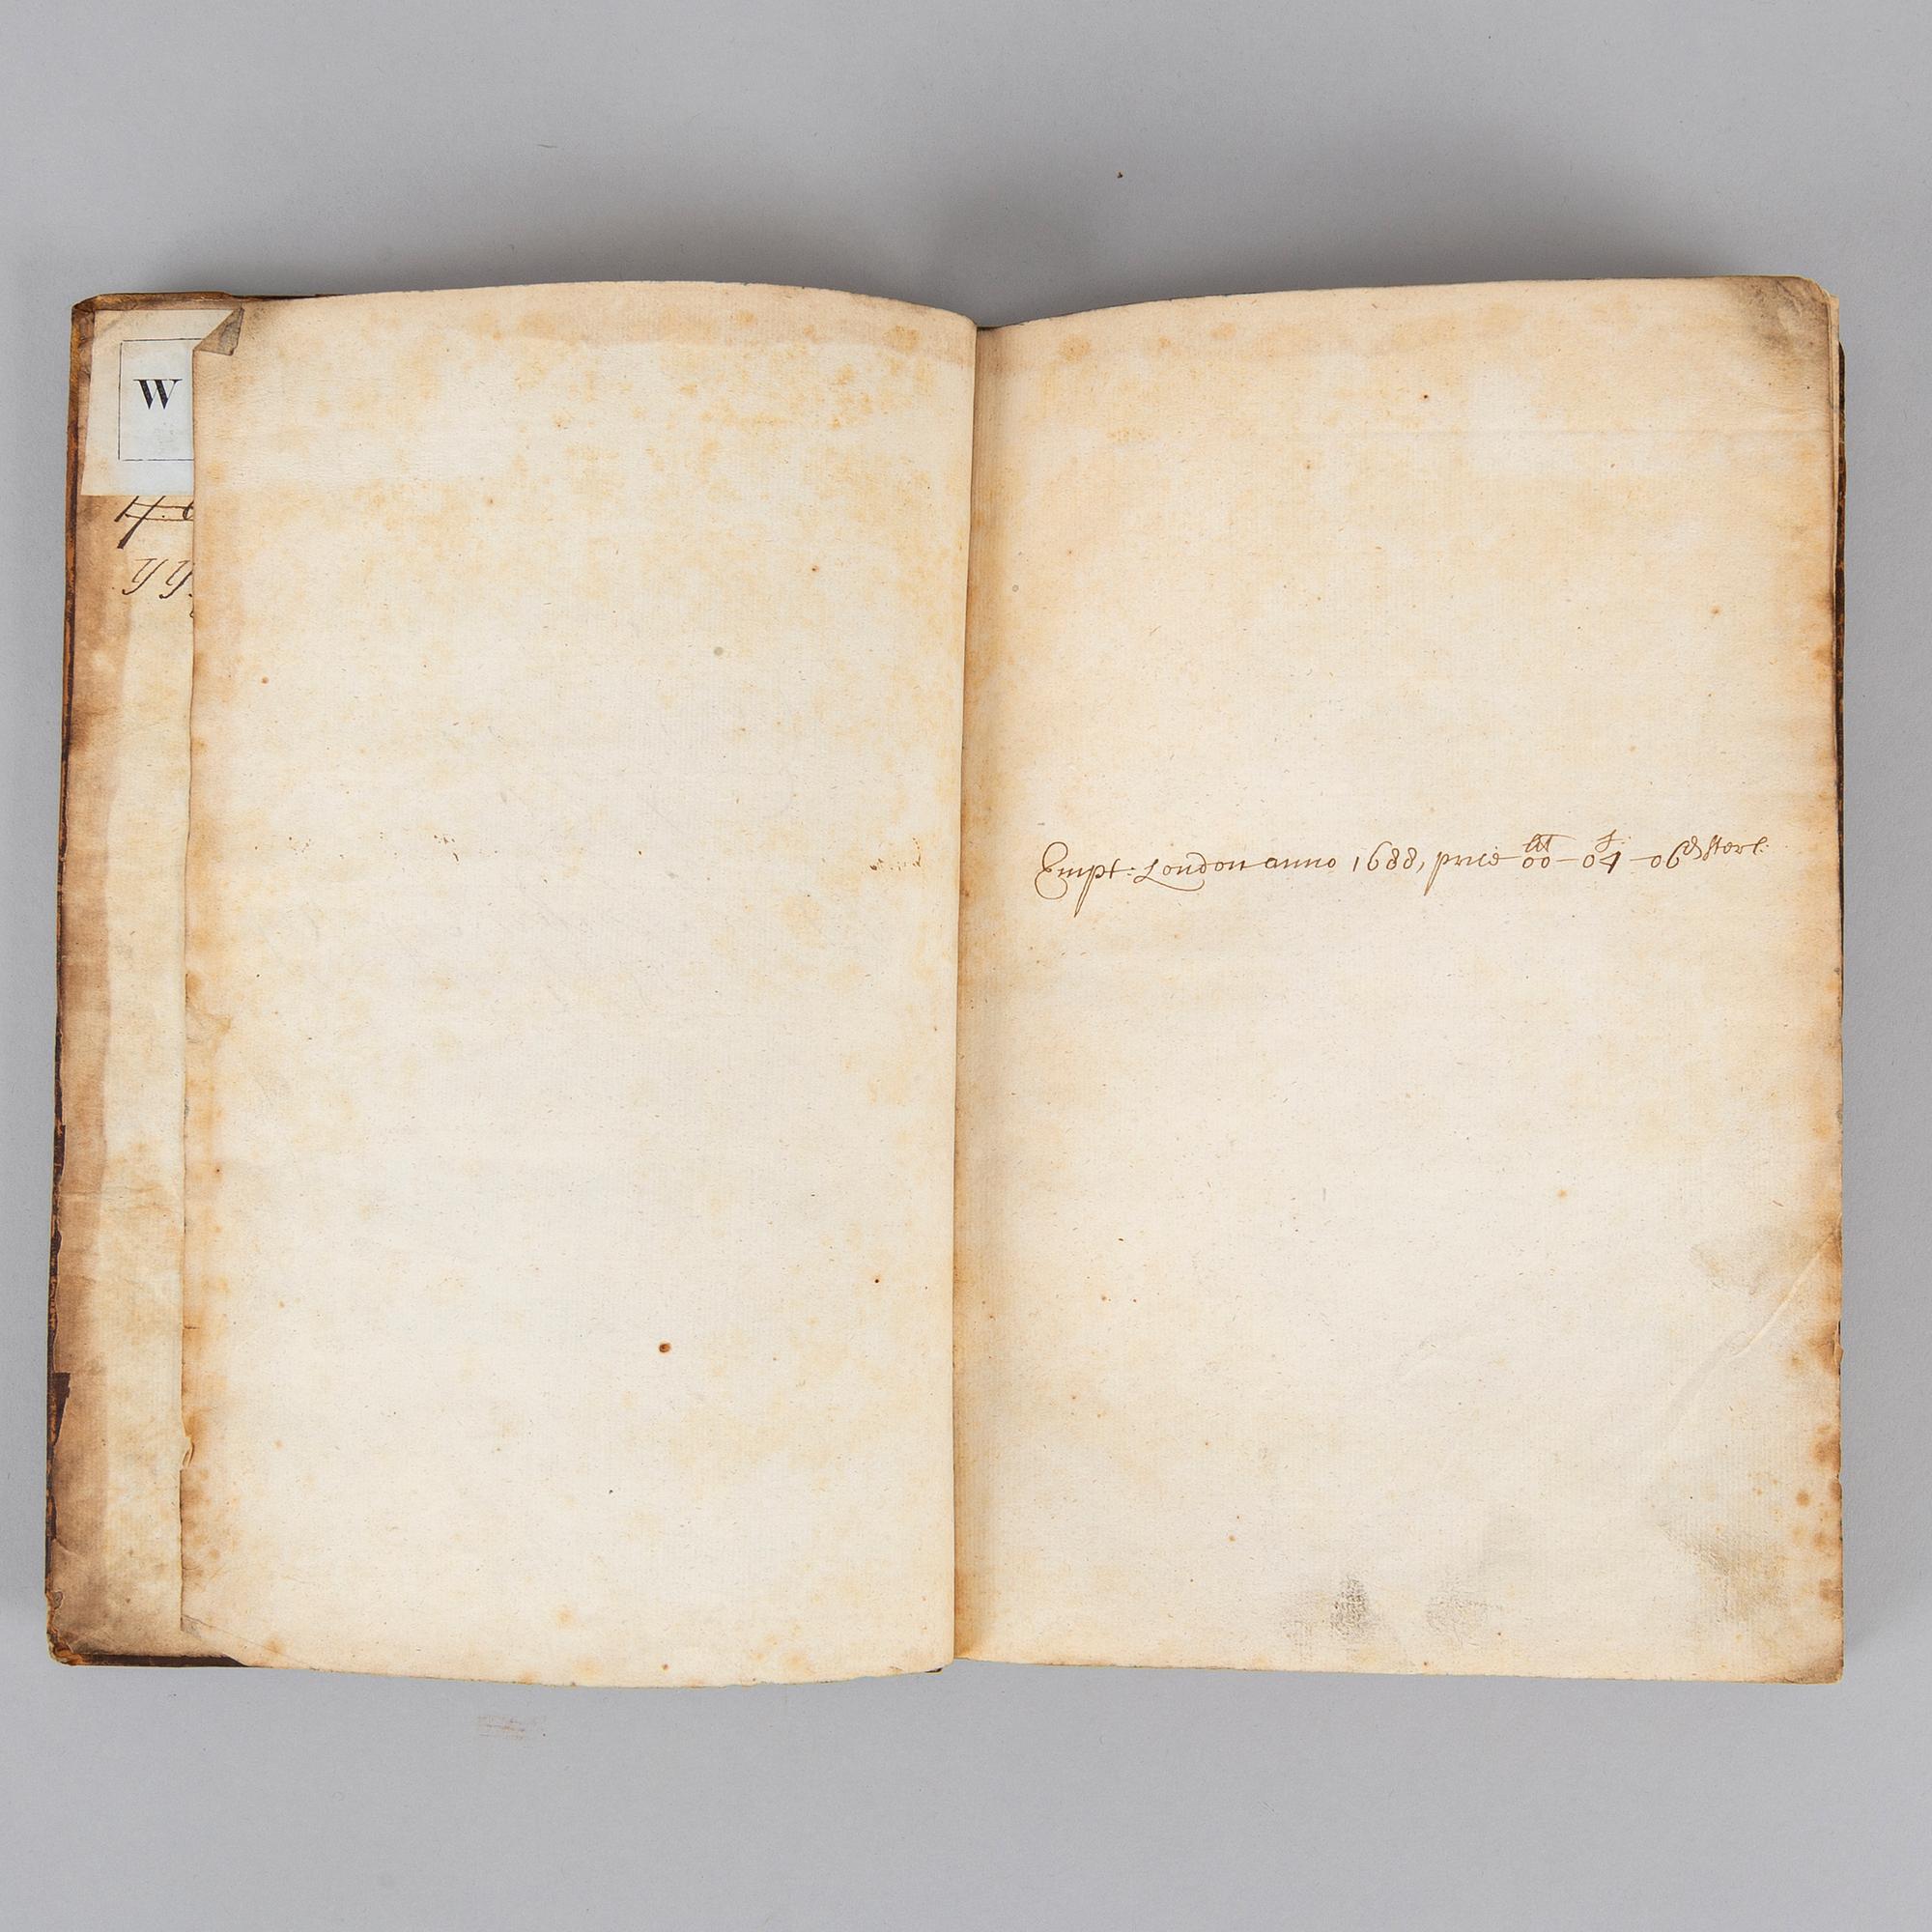 W
yy
Empt: London anno 1688, price 00ˡⁱᵗ-04ˢ-06ᵈ Sterl: